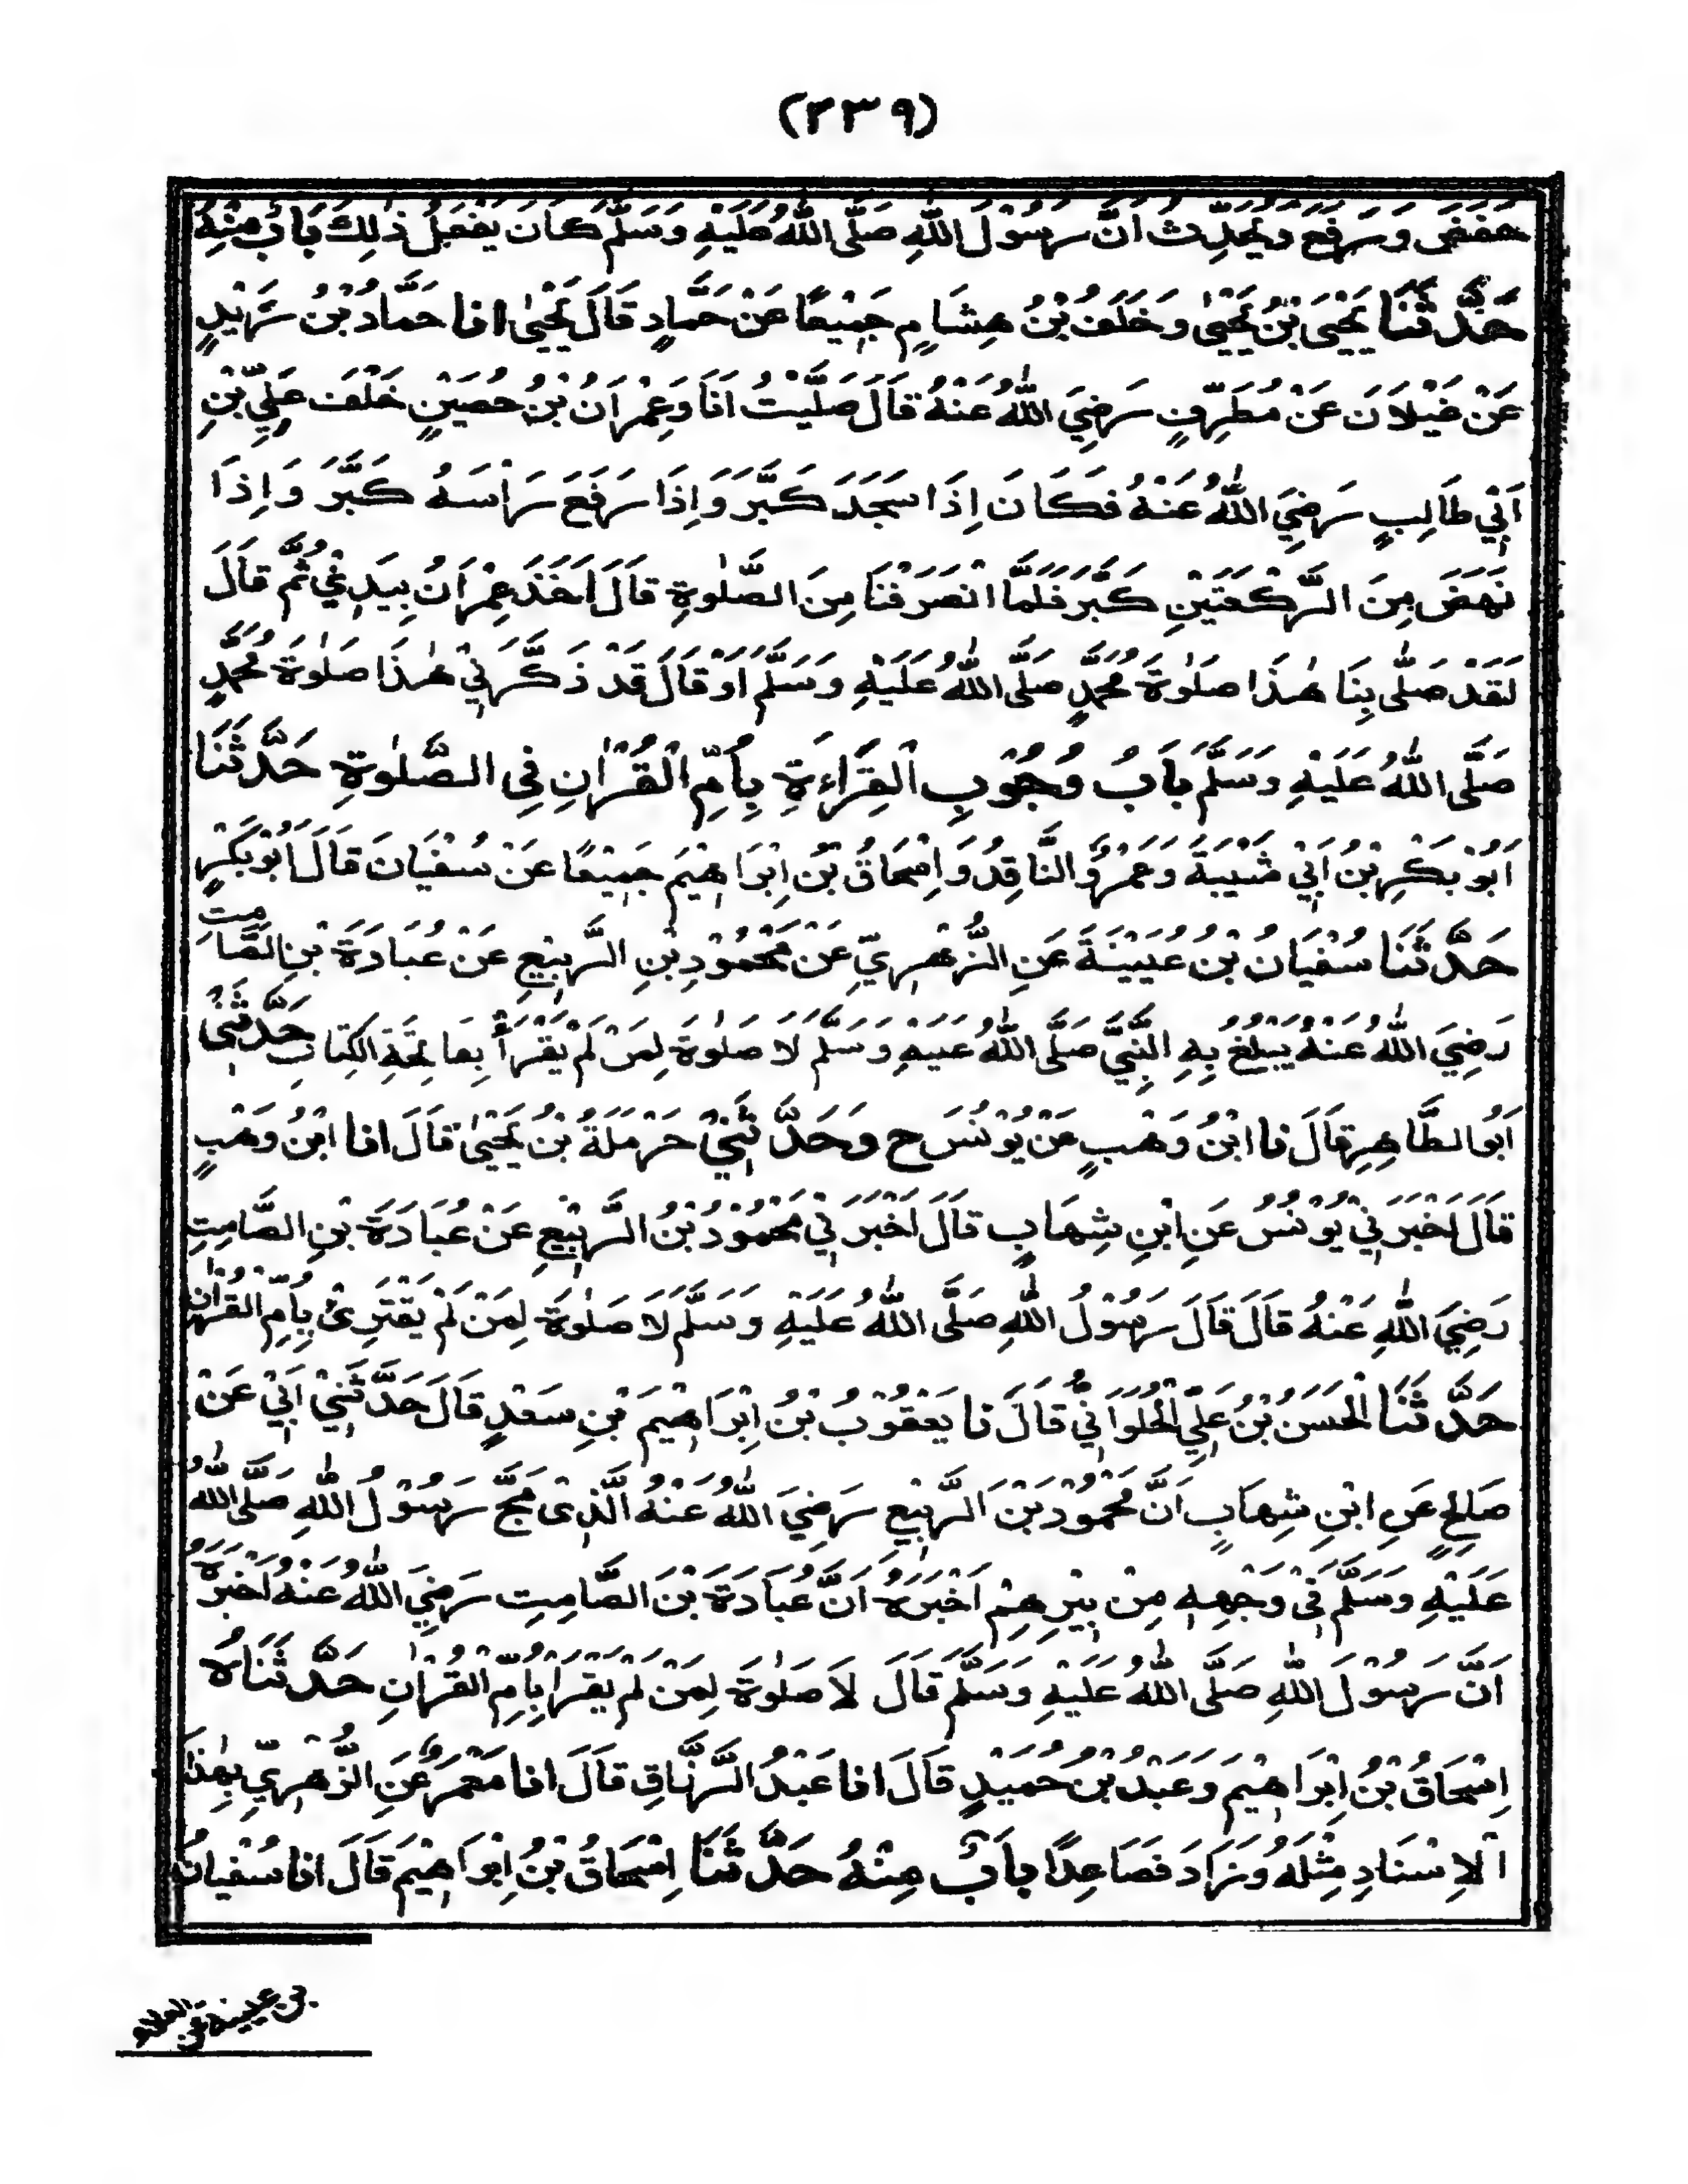 (٢٣٩)
خَفَضَ وَرَفَعَ وَيُحَدِّثُ أَنَّ رَسُوْلَ اللّٰهِ صَلَّى اللّٰهُ عَلَيْهِ وَسَلَّمَ كَانَ يَفْعَلُ ذٰلِكَ بَابٌ مِنْهُ
حَدَّثَنَا يَحْيَى بْنُ يَحْيٰى وَخَلَفُ بْنُ هِشَامٍ جَمِيْعًا عَنْ حَمَّادٍ قَالَ يَحْيٰى انا حَمَّادُ بْنُ زَيْدٍ
عَنْ غَيْلَانَ عَنْ مُطَرِّفٍ رَضِيَ اللّٰهُ عَنْهُ قَالَ صَلَّيْتُ اَنَا وَعِمْرَانُ بْنُ حُصَيْنٍ خَلْفَ عَلِيِّ بْنِ
اَبِيْ طَالِبٍ رَضِيَ اللّٰهُ عَنْهُ فَكَانَ اِذَا سَجَدَ كَبَّرَ وَاِذَا رَفَعَ رَاْسَهُ كَبَّرَ وَاِذَا
نَهَضَ مِنَ الرَّكْعَتَيْنِ كَبَّرَ فَلَمَّا انْصَرَفْنَا مِنَ الصَّلٰوةِ قَالَ اَخَذَ عِمْرَانُ بِيَدِيْ ثُمَّ قَالَ
لَقَدْ صَلّٰى بِنَا هٰذَا صَلٰوةَ مُحَمَّدٍ صَلَّى اللّٰهُ عَلَيْهِ وَسَلَّمَ اَوْ قَالَ قَدْ ذَكَّرَنِيْ هٰذَا صَلٰوةَ مُحَمَّدٍ
صَلَّى اللّٰهُ عَلَيْهِ وَسَلَّمَ بَابُ وُجُوْبِ الْقِرَاءَةِ بِاُمِّ الْقُرْاٰنِ فِى الصَّلٰوةِ حَدَّثَنَا
اَبُوْ بَكْرِ بْنُ اَبِيْ شَيْبَةَ وَعَمْرٌو النَّاقِدُ وَاِسْحَاقُ بْنُ اِبْرَاهِيْمَ جَمِيْعًا عَنْ سُفْيَانَ قَالَ اَبُوْ بَكْرٍ
حَدَّثَنَا سُفْيَانُ بْنُ عُيَيْنَةَ عَنِ الزُّهْرِيِّ عَنْ مَحْمُوْدِ بْنِ الرَّبِيْعِ عَنْ عُبَادَةَ بْنِ الصَّامِتِ
رَضِيَ اللّٰهُ عَنْهُ يَبْلُغُ بِهِ النَّبِيَّ صَلَّى اللّٰهُ عَلَيْهِ وَسَلَّمَ لَا صَلٰوةَ لِمَنْ لَمْ يَقْرَأْ بِفَاتِحَةِ الْكِتَابِ حَدَّثَنِيْ
اَبُو الطَّاهِرِ قَالَ نا ابْنُ وَهْبٍ عَنْ يُوْنُسَ ح وَحَدَّثَنِيْ حَرْمَلَةُ بْنُ يَحْيٰى قَالَ انا ابْنُ وَهْبٍ
قَالَ اَخْبَرَنِيْ يُوْنُسُ عَنِ ابْنِ شِهَابٍ قَالَ اَخْبَرَنِيْ مَحْمُوْدُ بْنُ الرَّبِيْعِ عَنْ عُبَادَةَ بْنِ الصَّامِتِ
رَضِيَ اللّٰهِ عَنْهُ قَالَ قَالَ رَسُوْلُ اللّٰهِ صَلَّى اللّٰهُ عَلَيْهِ وَسَلَّمَ لَا صَلٰوةَ لِمَنْ لَمْ يَقْتَرِئْ بِاُمِّ الْقُرْاٰنِ
حَدَّثَنَا الْحَسَنُ بْنُ عَلِيٍّ الْحُلْوَانِيُّ قَالَ نا يَعْقُوْبُ بْنُ اِبْرَاهِيْمَ بْنِ سَعْدٍ قَالَ حَدَّثَنِيْ اَبِيْ عَنْ
صَالِحٍ عَنِ ابْنِ شِهَابٍ اَنَّ مَحْمُوْدَ بْنَ الرَّبِيْعِ رَضِيَ اللّٰهُ عَنْهُ الَّذِىْ مَجَّ رَسُوْلُ اللّٰهِ صَلَّى اللّٰهُ
عَلَيْهِ وَسَلَّمَ فِيْ وَجْهِهٖ مِنْ بِيْرِهِمْ اَخْبَرَهُ اَنَّ عُبَادَةَ بْنَ الصَّامِتِ رَضِيَ اللّٰهُ عَنْهُ اَخْبَرَهُ
اَنَّ رَسُوْلَ اللّٰهِ صَلَّى اللّٰهُ عَلَيْهِ وَسَلَّمَ قَالَ لَا صَلٰوةَ لِمَنْ لَمْ يَقْرَا بِاُمِّ الْقُرْاٰنِ حَدَّثَنَاهُ
اِسْحَاقُ بْنُ اِبْرَاهِيْمَ وَعَبْدُ بْنُ حُمَيْدٍ قَالَ انا عَبْدُ الرَّزَّاقِ قَالَ انا مَعْمَرٌ عَنِ الزُّهْرِيِّ بِهٰذَا
الْاِسْنَادِ مِثْلَهُ وَزَادَ فَصَاعِدًا بَابٌ مِنْهُ حَدَّثَنَا اِسْحَاقُ بْنُ اِبْرَاهِيْمَ قَالَ انا سُفْيَانُ
بن عيينة عن العلاء